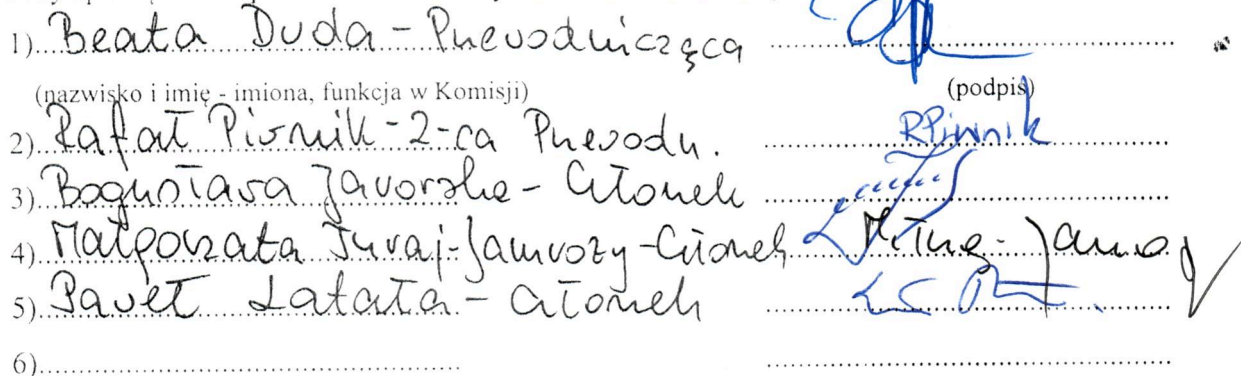 1) Beata Duda - Przewodnicząca
(nazwisko i imię - imiona, funkcja w Komisji) (podpis)
2) Rafał Piwnik - Z-ca Przewodn. RPiwnik
3) Bogusława Jaworska - Członek
4) Małgorzata - Członek
5) Paweł Latała - Członek
6)